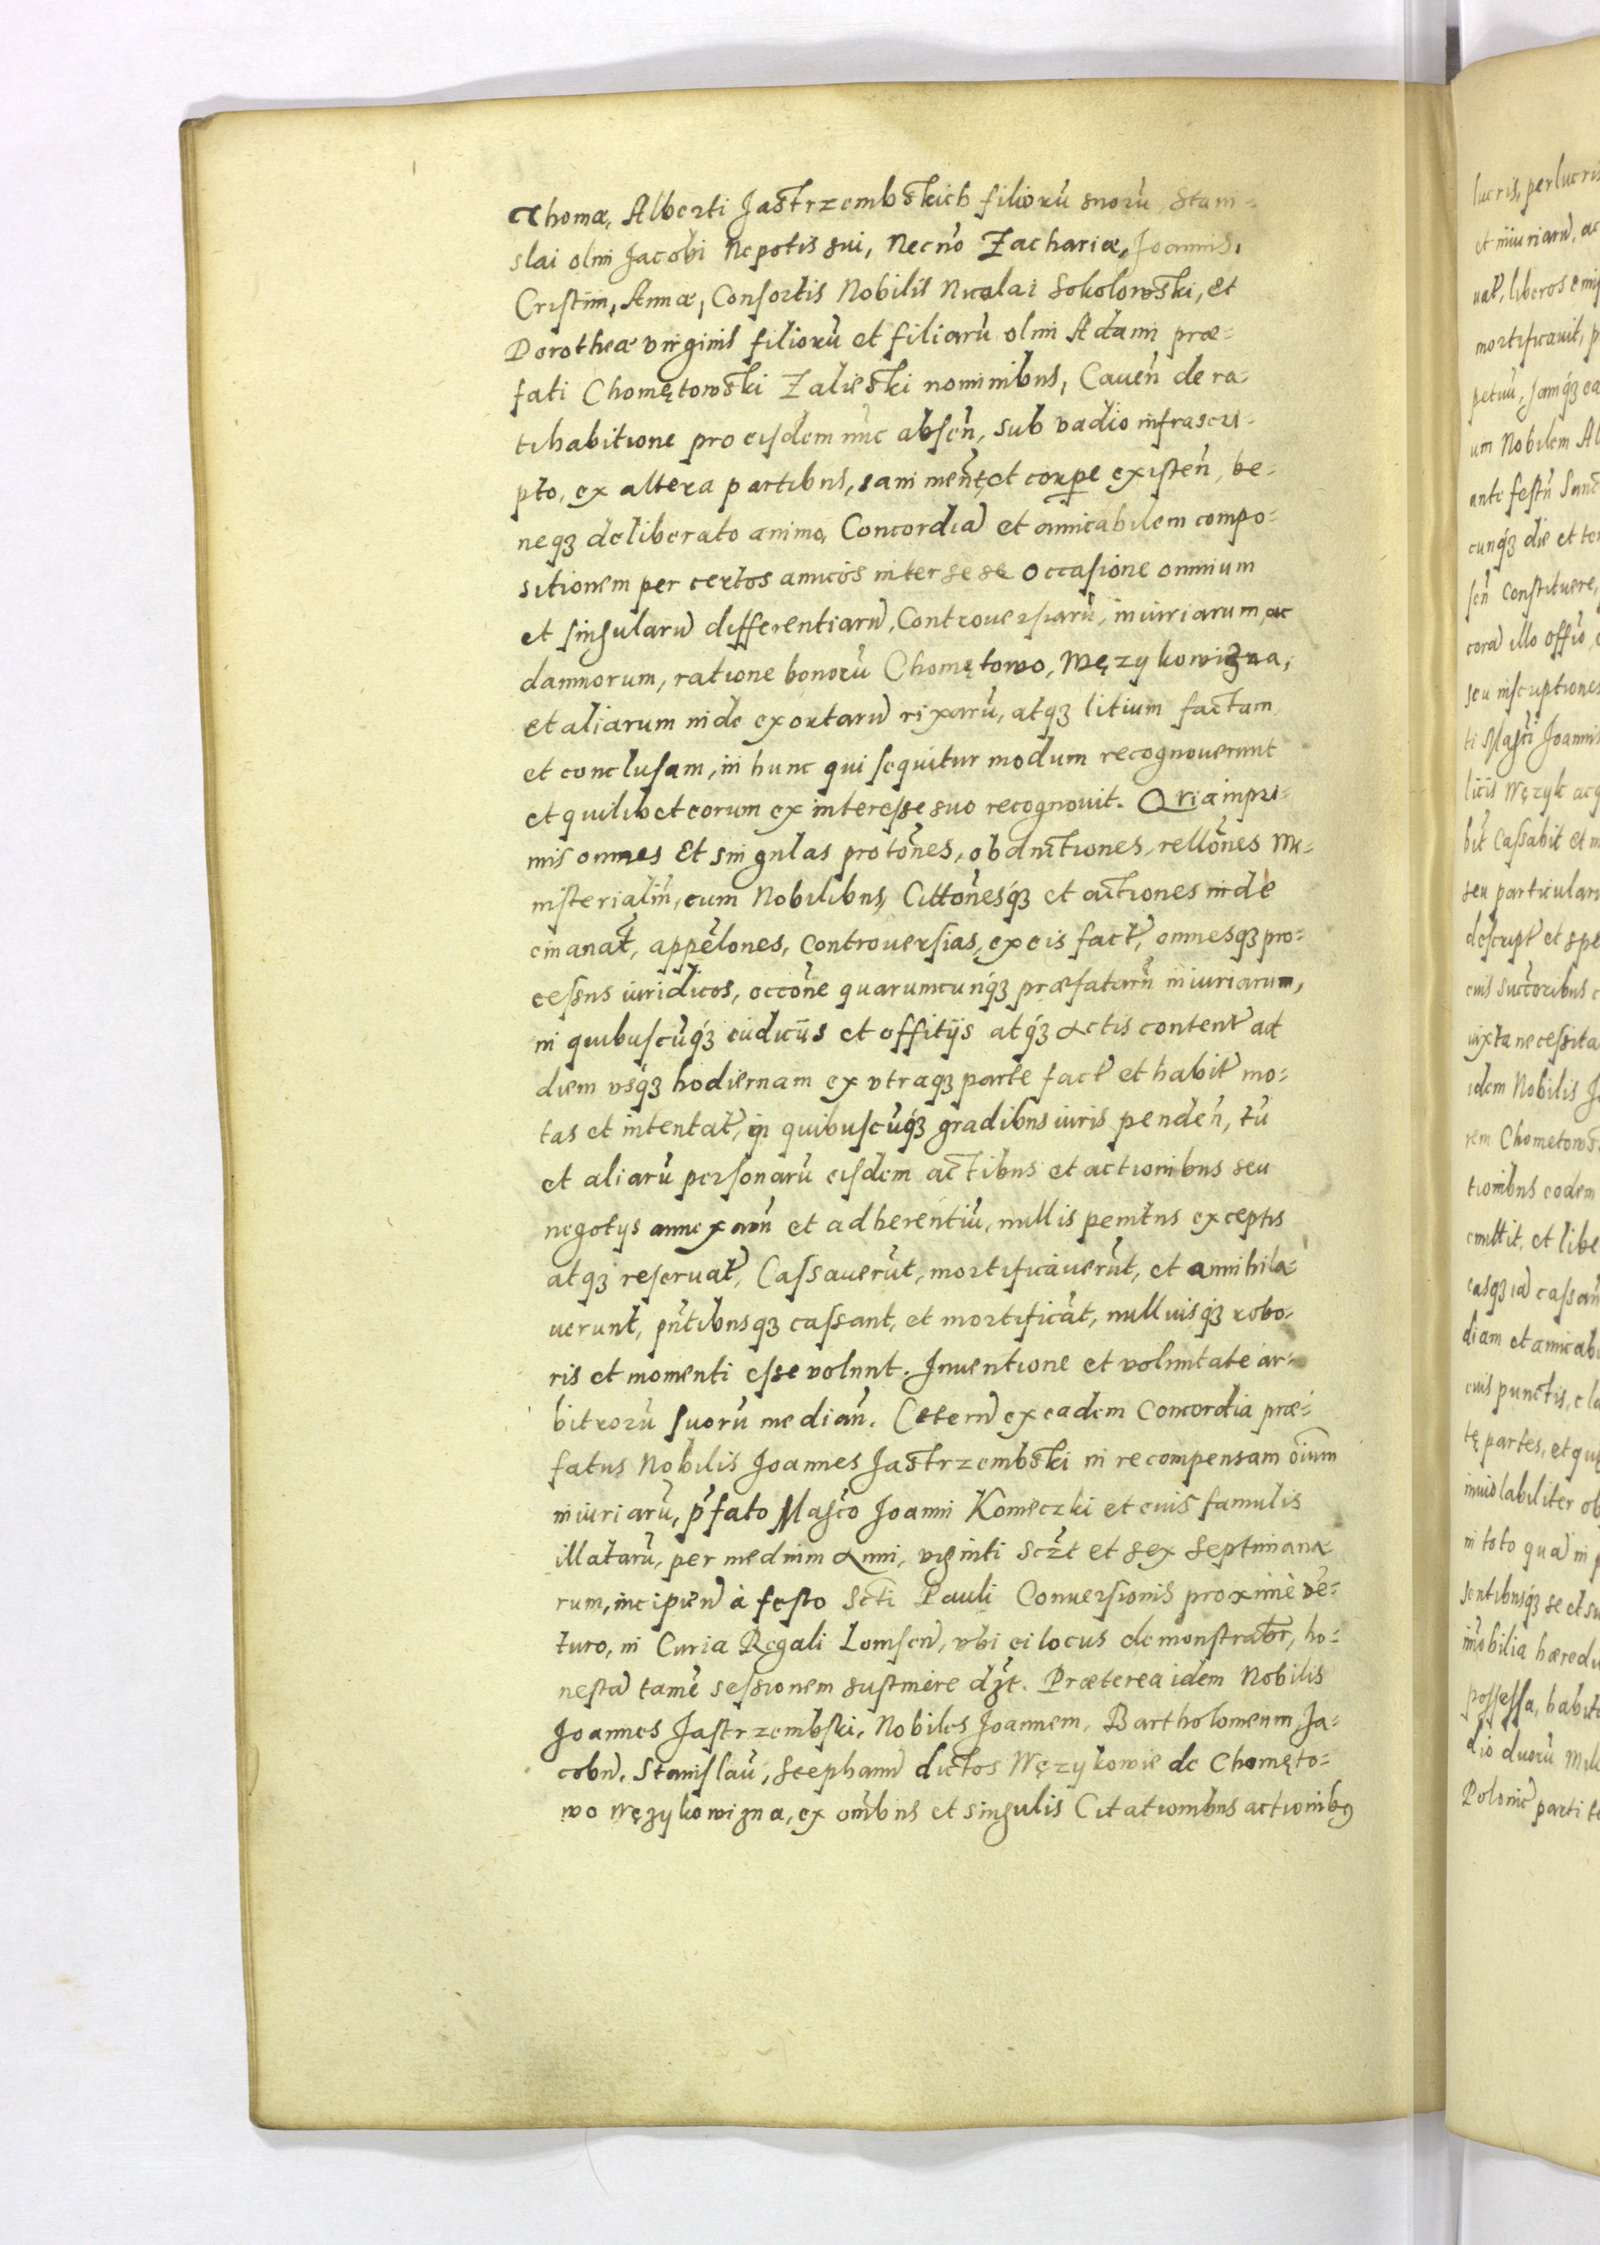 Thomæ, Alberti Jastrzembskich filiorũ suorũ, Stani-
slai olim Jacobi Nepotis sui, Necnõ Zachariæ, Joannis,
Cristini, Annæ, Consortis Nobilis Nicolai Sokolowski, et
Dorotheæ virginis filiorũ et filiarũ olim Adami præ-
fati Chomętowski Zalieski nominibus, Caueñ de ra
tihabitione pro eisdem nũc abseñ, sub vadio infrascri-
pto, ex altera partibus, sani mentę et corpe existeñ, be-
neqȝ deliberato animo, Concordiã et amicabilem compo-
sitionem per certos amicos inter se se occasione omnium
et singularũ differentiarũ, Controuersiarũ, iniuriarum, ac
damnorum, ratione bonorũ Chomętowo, Męzykowizna,
et aliarum inde exortarũ rixarũ, atqȝ litium factam
et conclusam, in hunc qui sequitur modum recognouerunt
et quilibet eorum ex interesse suo recognouit. Quia inpri-
mis omnes Et singulas protones, obductiones, rellones Mi-
nisterialiũ, cum Nobilibus, Cittonesqȝ et actiones inde
emanat, appellones, controuersias, ex eis fact, omnesqȝ pro-
cessus iuridicos, occone quarumcunqȝ præfatarũ iniuriarum,
in quibuscũqȝ iudicijs et offitijs atqȝ actis content ad
diem vsqȝ hodiernam ex vtraqȝ parte fact et habit mo-
tas et intentat, in quibuscũqȝ gradibus iuris pendeñ, tũ
et aliarũ personarũ eisdem actibus et actionibus seu
negotijs annexarũ et adherentiũ, nullis penitus exceptis
atqȝ reseruat, Cassauerũt, mortificauerũt, et annihila-
uerunt, pñtibusqȝ cassant, et mortificãt, nulliusqȝ robo-
ris et momenti esse volunt. Inuentione et voluntate ar-
bitrorũ suorũ mediañ. Ceterũ ex eadem Concordia præ-
fatus Nobilis Joannes Jastrzembski in recompensam oium
iniuriarũ, pfato Masco Joanni Komeczki et euis famulis
illatarũ, per medium Anni, viginti sczt et sex septimana
rum, incipieñ à festo Scti Pauli Conuersionis proxime ve-
turo, in Curia Regali Lomseñ, vbi ei locus demonstrabr, ho-
nestã tamẽ sessionem sustinere dȝt. Præterea idem Nobilis
Joannes Jastrzembski, Nobiles Joannem, Bartholomeum, Ja-
cobũ, Stanislaũ, Stephanũ dictos Węzykowie de Chomęto-
wo Węzykowizna, ex omibus et singulis Citationibus actionibȝ